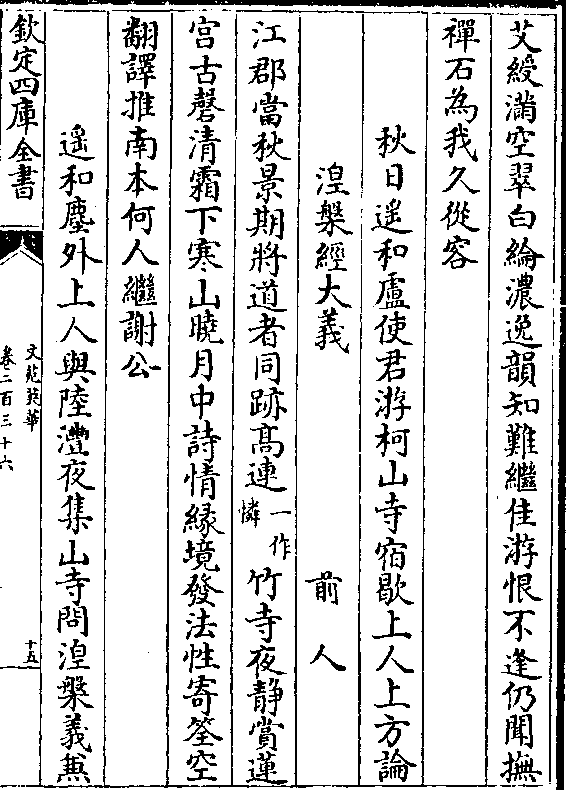 艾綬滿空翠白綸濃逸韻知難繼佳游恨不逢仍聞撫
禪石為我久從容
秋日遥和盧使君游柯山寺宿歇上人上方論
湼槃經大義
前人
江郡當秋景期將道者同跡髙連一作憐竹寺夜静賞蓮
宫古磬清霜下寒山曉月中詩情縁境發法性寄筌空
翻譯推南本何人繼謝公
遥和塵外上人與陸澧夜集山寺問湼槃義兼
欽定四庫全書
文苑英華
卷二百三十六
十五